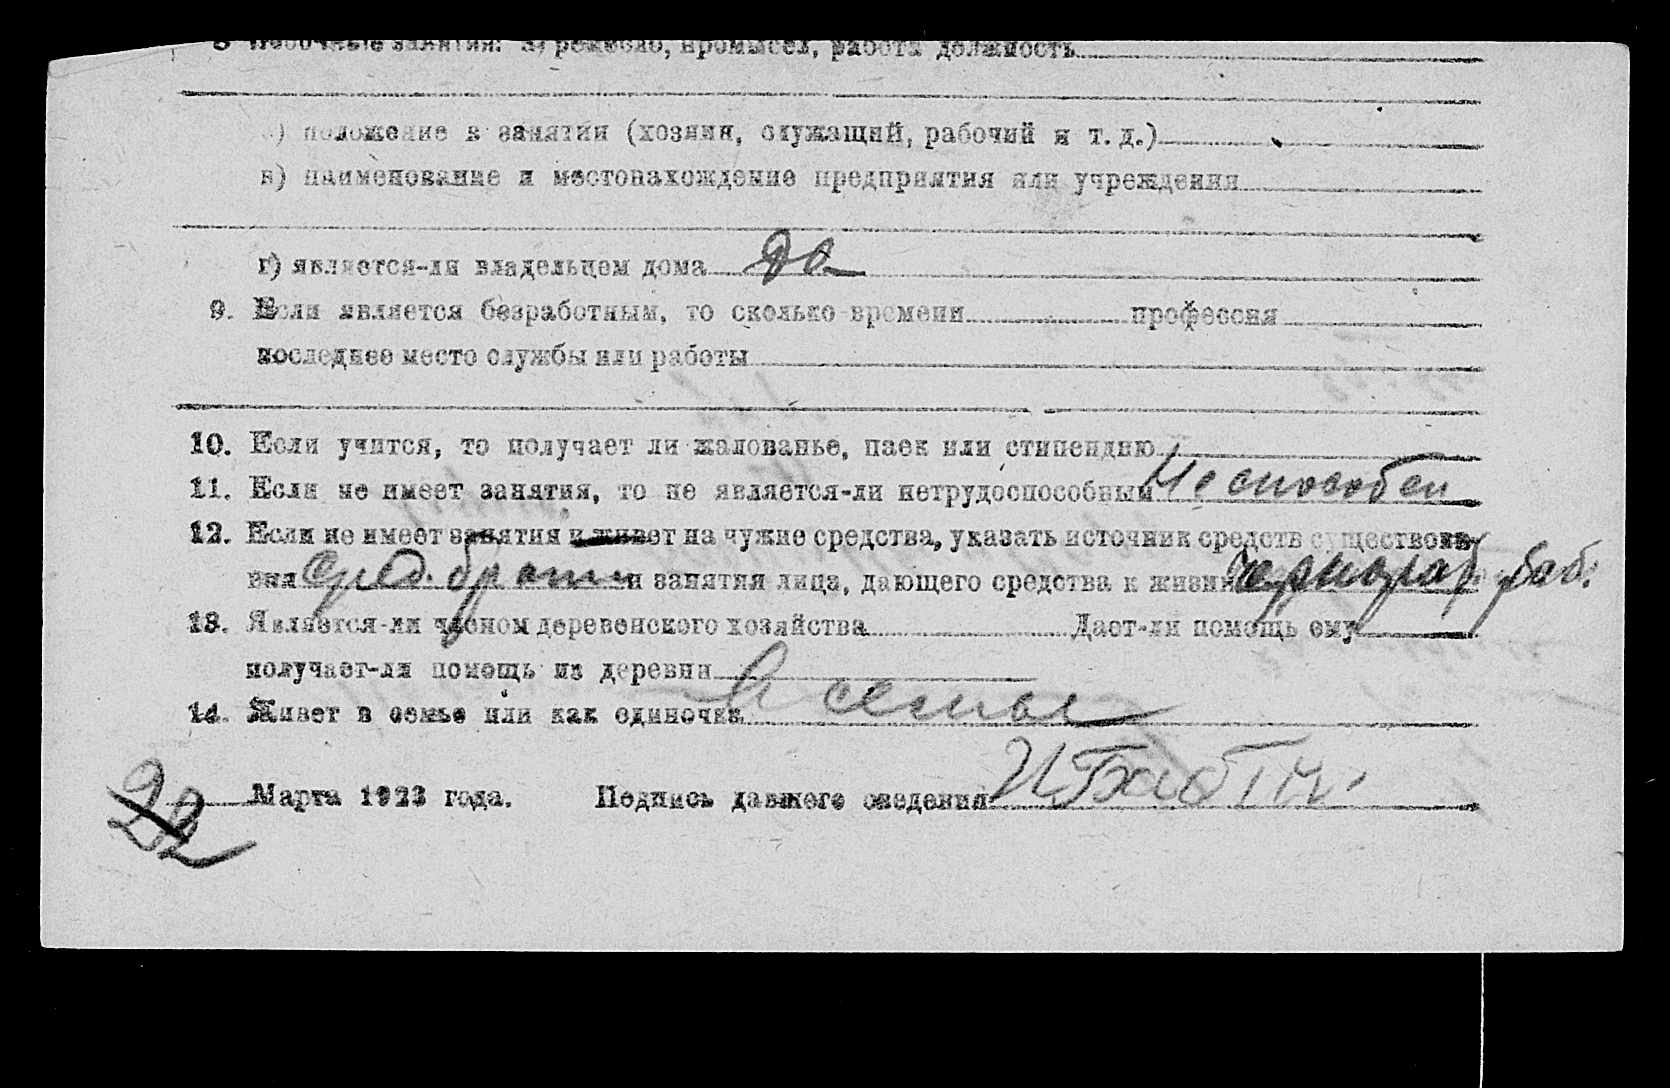 8 Побочные занятия: а) ремесло, промысел, работа должность
б) положение в занятии (хозяин, служащий, рабочий и т. д.)
в) наименование и местонахождение предприятия или учреждения
г) является-ли владельцем дома да
9. Если является безработным, то сколько времени профессия
последнее место службы или работы
10. Если учится, то получает ли жалованье, паек или стипендию
11. Если не имеет занятия, то не является-ли нетрудоспособным Не способен
12. Если не имеет занятия и живет на чужие средства, указать источник средств существова-
ния сред. брата и занятия лица, дающего средства к жизни чернораб раб.
13. Является-ли членом деревенского хозяйства Дает-ли помощь ему
получает-ли помощь из деревни
14. Живет в семье или как одиночка В семье
22 Марта 1923 года. Подпись давшего сведения